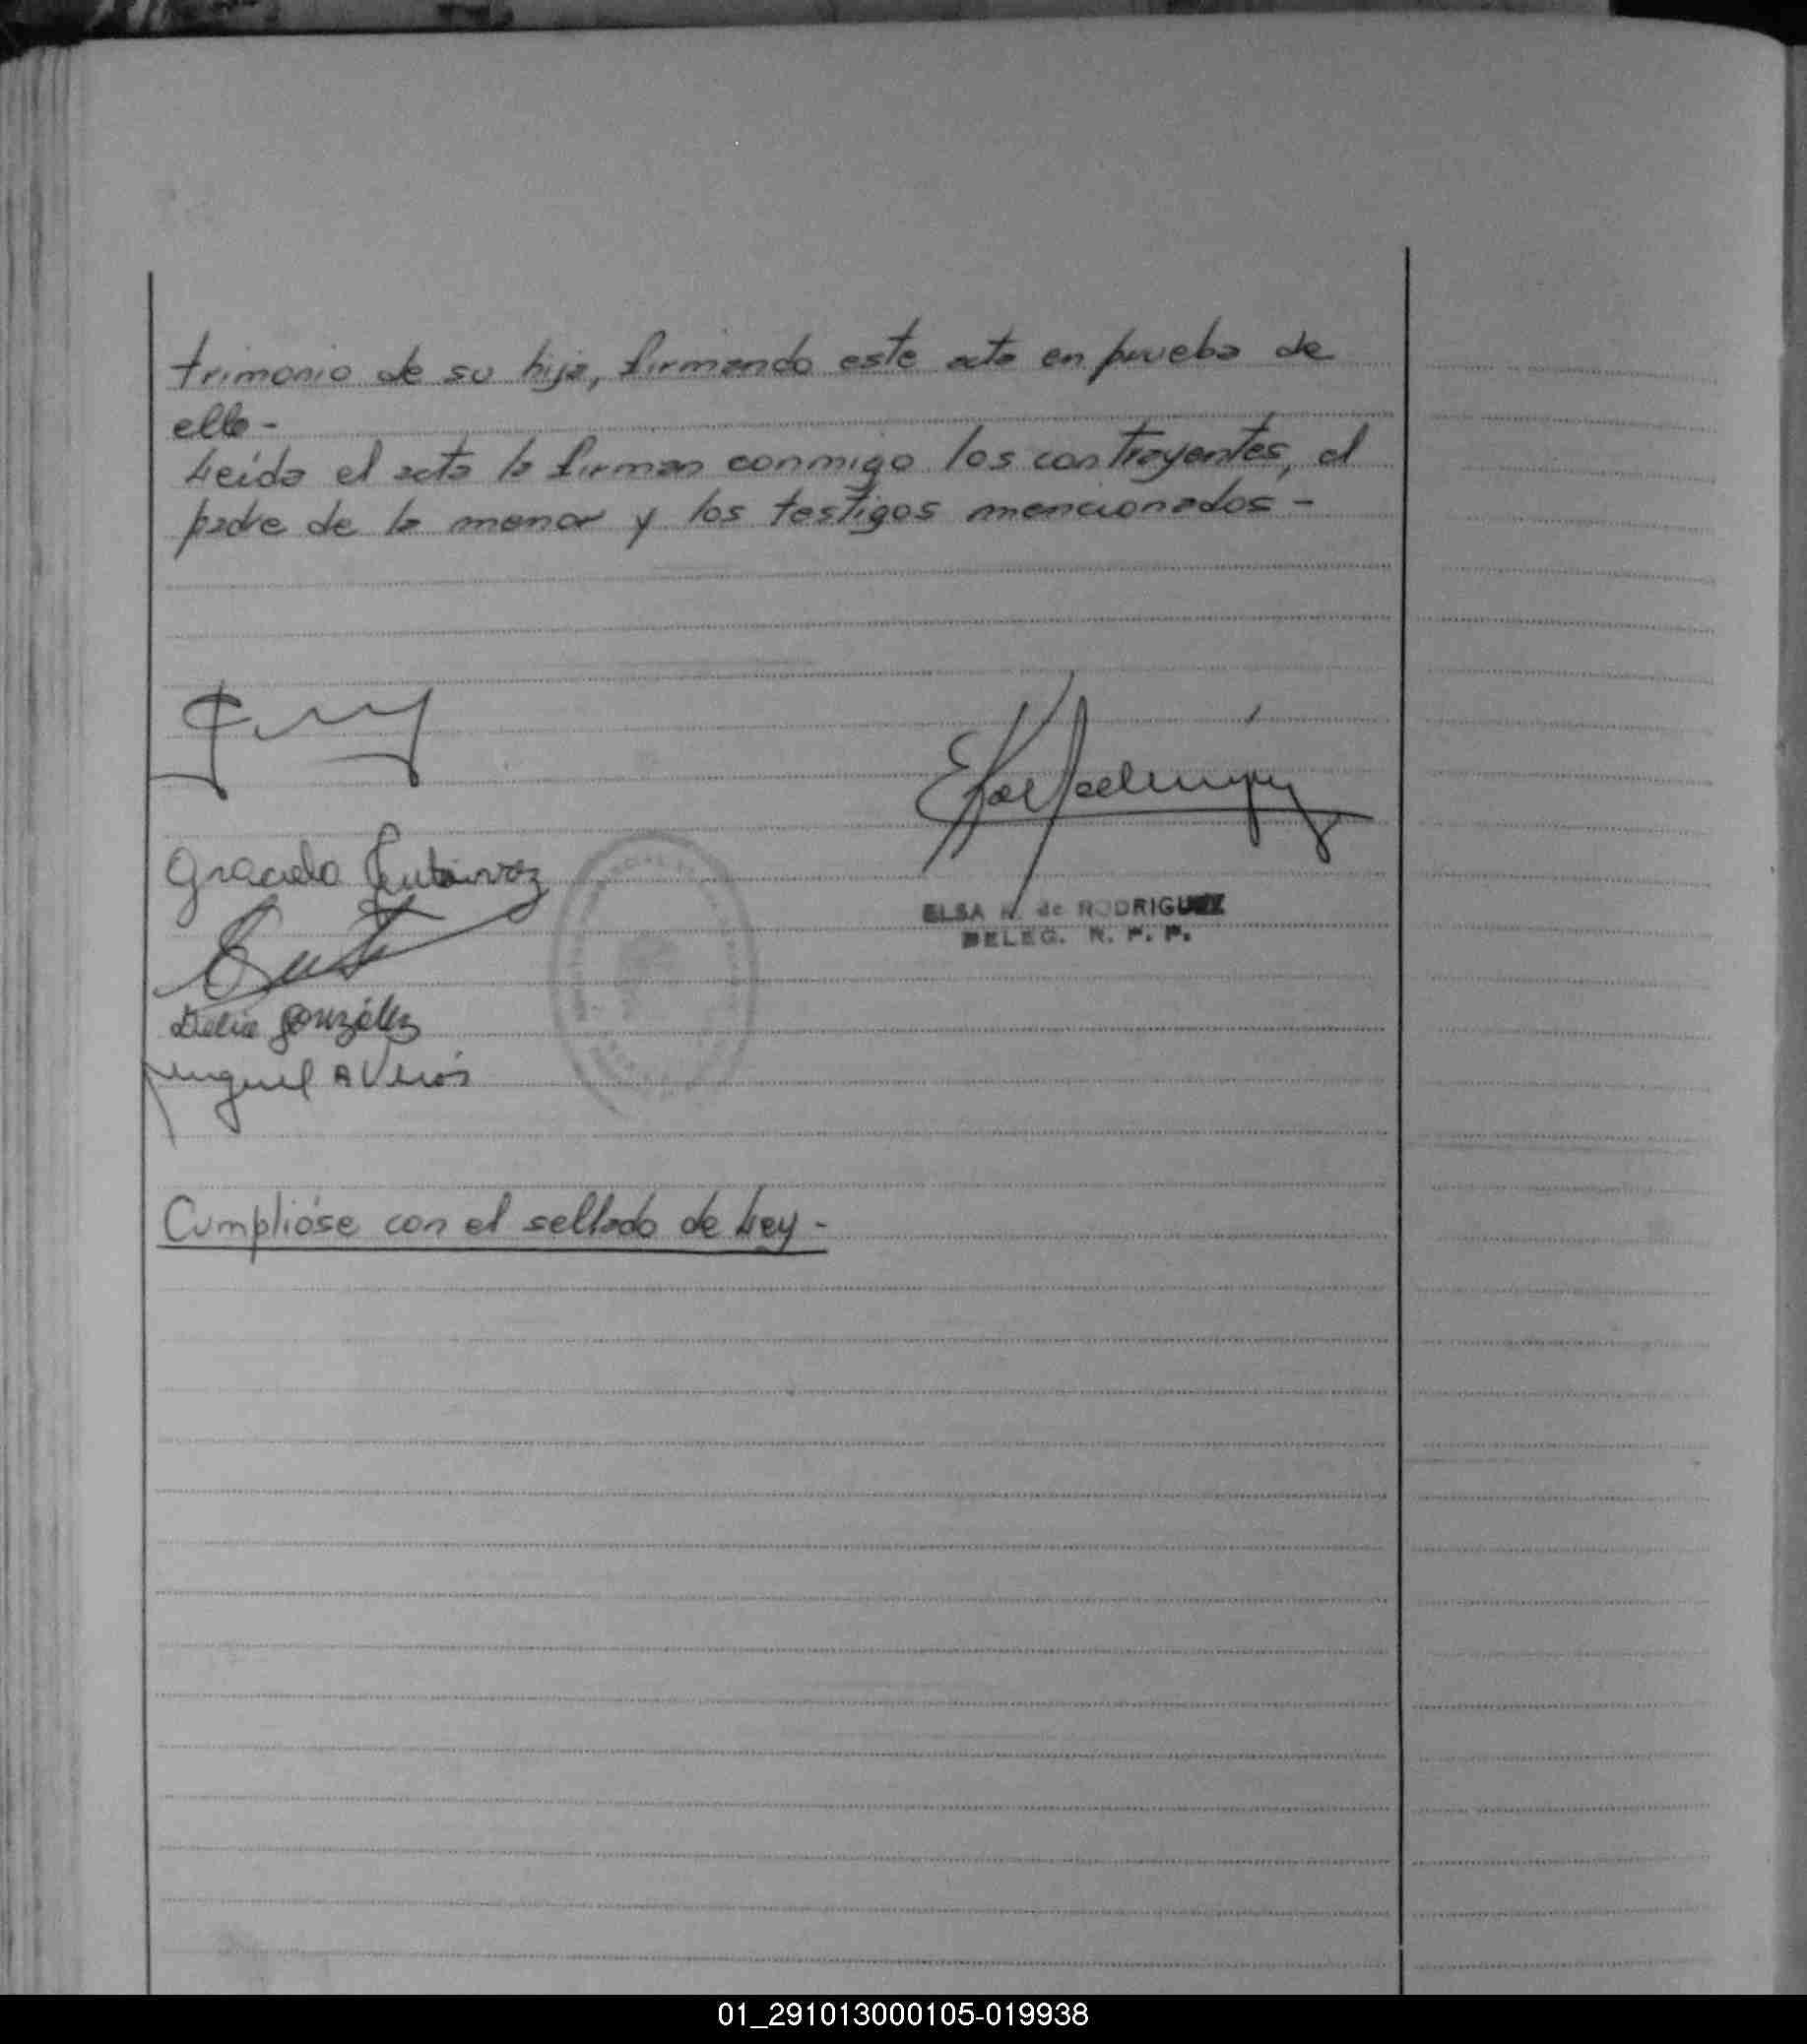 trimonio de su hija, firmando este acto en prueba de
ello -
Leída el acta la firman conmigo los contrayentes, el
padre de la menor y los testigos mencionados -
Graciela Gutierrez
Delia González
Miguel A
ELSA de RODRIGUEZ
DELEG. R. P. P.
Cumplióse con el sellado de Ley -
01_291013000105-019938